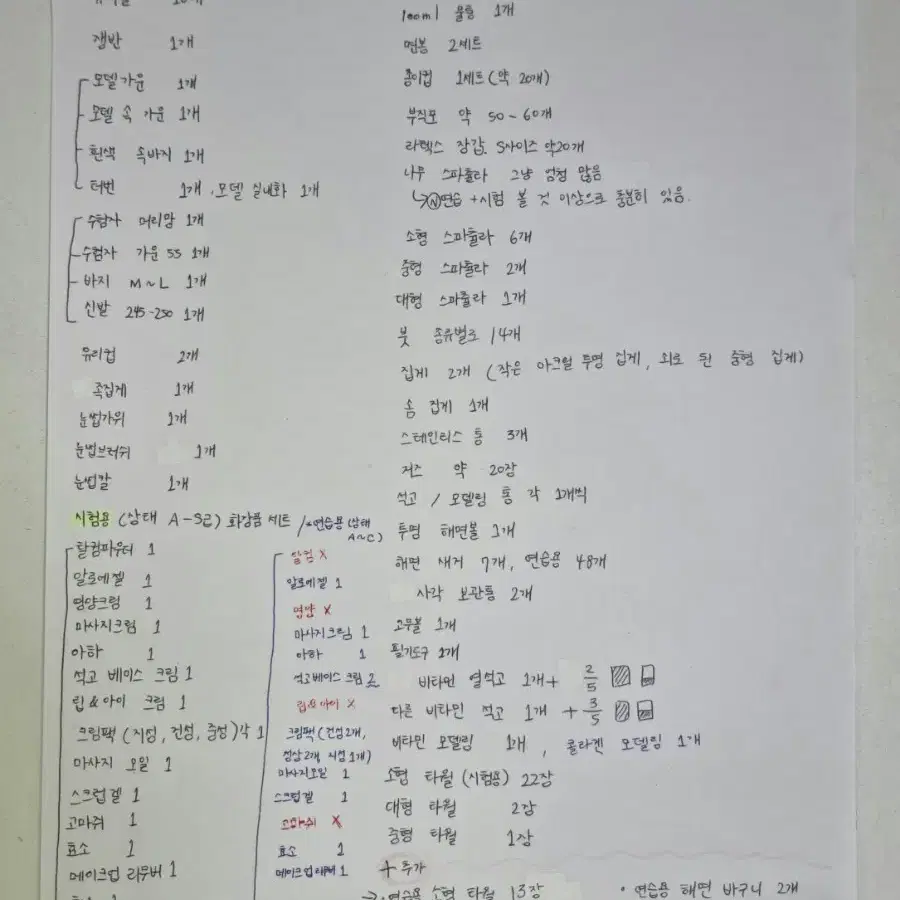 쟁반 1개
모델가운 1개
모델 속 가운 1개
흰색 속바지 1개
터번 1개, 모델 실내화 1개
수험자 머리망 1개
수험자 가운 55 1개
바지 M~L 1개
신발 245-250 1개
유리컵 2개
족집게 1개
눈썹가위 1개
눈썹브러쉬 1개
눈썹칼 1개
시험용 (상태 A-S급) 화장품 세트 / *연습용 (상태 A~C)
탈컴파우더 1
알로에젤 1
영양크림 1
마사지크림 1
아하 1
석고 베이스 크림 1
립&아이 크림 1
크림팩 (지성, 건성, 중성) 각 1
마사지 오일 1
스크럽겔 1
고마쥐 1
효소 1
메이크업 리무버 1
탈컴 X
알로에젤 1
영양 X
마사지크림 1
아하 1
석고베이스 크림 2
립&아이 X
크림팩 (건성2개,
정상2개, 지성 1개)
마사지오일 1
스크럽겔 1
고마쥐 X
효소 1
메이크업 리무버 1
100ml 물통 1개
면봉 2세트
종이컵 1세트 (약 20개)
부직포 약 50~60개
라텍스 장갑 S사이즈 약20개
나무 스파츌라 그냥 엄청 많음
↳ⓝ연습 + 시험 볼 것 이상으로 충분히 있음.
소형 스파츌라 6개
중형 스파츌라 2개
대형 스파츌라 1개
붓 종류별로 14개
집게 2개 (작은 아크릴 투명 집게, 쇠로 된 중형 집게)
솜 집게 1개
스테인리스 통 3개
거즈 약 20장
석고 / 모델링 통 각 1개씩
투명 해면볼 1개
해면 새거 7개, 연습용 48개
사각 보관통 2개
고무볼 1개
필기도구 2개
비타민 열석고 1개 + 2/5
다른 비타민 석고 1개 + 3/5
비타민 모델링 1개, 콜라겐 모델링 1개
소형 타월 (시험용) 22장
대형 타월 2장
중형 타월 1장
+ 추가
→ • 연습용 소형 타월 13장
• 연습용 해면 바구니 2개